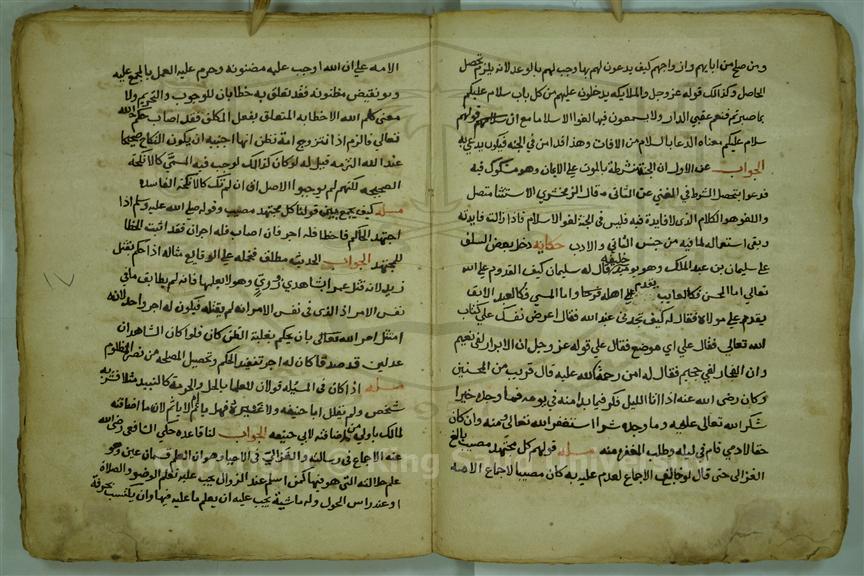 ومن صلح من ابايهم وازواجهم كيف يدعون لهم بها وجب لهم بالوعد لانه يلزم تحصل
الحاصل وكذلك قوله عز وجل والملايكه يدخلون عليهم من كل باب سلام عليكم
بما صبرتم فنعم عقبي الدار ولا يسمعون فيها لغوا الا سلاما مع ان قولهم
سلام عليكم معناه الدعا بالسلام من الافات وهذا قد امن في الجنه فيكون
الجواب عن الاول ان الجنة مشرطة بالموت علي الايمان وهو مشكوك فيه
فدعوا بتحصل الشرط في المغني عن الثاني ما قال الزمخشري الاستثنا متصل
واللغو هو الكلام الذي لا فايدة فيه فليس في الجنة لغو الا سلام فاذا زالت فايدته
وبقي استعماله لما فيه من جنس التاني والادب حكايه دخل بعض السلف
علي سليمان بن عبد الملك وهو يوميذ خليفة فقال له سليمان كيف القدوم علي الله
تعالي اما المحسن فكالغايب يقدم علي اهله فرحا واما المسي فكالعبد الابق
يقدم علي مولاه فقال له كيف تجدني عند الله فقال اعرض نفسك علي كتاب
الله تعالي فقال علي اي موضع فقال علي قوله عز وجل ان الابرار لفي نعيم
وان الفجار لفي جحيم فقال له اين رحمة الله عليه قال قريب من المحسنين
وكان رضي الله عنه اذا اتا الليل فكر فيما بدا منه في يومه فما وجده خيرا
شكر الله تعالي عليه وما وجده شرا استغفر الله تعالي منه وان كان
حقا لادمي قام في ليله وطلب المغفره منه مسله قولهم كل مجتهد مصيب بالغ
الغزالي حتي قال لو خالف الاجماع لعدم علمه به كان مصيبا لاجماع الامه
الامه علي ان الله اوجب عليه مضنونه وحرم عليه العمل بالمجمع عليه
وهو نقيض مظنونه فقد تعلق به خطابان للوجوب والتحريم ولا
معني لحكم الله الا خطابه المتعلق بفعل المكلف فقد اصاب حكم الله
تعالي فالزم اذا تزوج امة نظن انها اجنبيه ان يكون النكاح صحيحا
عند الله التزمه قيل له لو كان كذلك لوجب فيه المسمي كالانكحه
الصحيحه لكنهم لم يوجبوا الاصل فان لم تك كالانكحة الفاسده
مسله كيف يجمع بين قولنا كل مجتهد مصيب وقوله صلي الله عليه وسلم اذا
اجتهد الحاكم فاخطا فله اجر فان اصاب فله اجران فقد اثبت الخطا
للمجتهد الجواب الحديث مطلق فنحمله علي الوقايع مثاله اذا حكم بقتل
زيد لانه قتل عمرا بشاهدي زور وهو لا يعلمها فانه لم يطابق ما في
نفس الامر اذ الذي في نفس الامر انه لم يقتله فيكون له اجر واحد لانه
امتثل امر الله تعالي بان يحكم بغلبة الظن كان فلو كان الشاهدان
عدلين قد صدقا كان له اجر تنفيذ الحكم وتحصيل المصلحه من نصر المظلوم
مسله اذا كان في المسله قولان للعلما بالحل والحرمة كالنبيد مثلا فشربه
شخص ولم يقلد ابا حنيفه ولا غيره فهل ياثم ام لا ياثم لان ما اضافته
لمالك باولي من اضافته لابي حنيفه الجواب لنا قاعده حكي الشافعي رضي الله
عنه الاجماع في رسالته والغزالي في الاحيا وهو ان العلم قسمان عين وهو
علم حالته التي هو فيها كمن اسلم عند الزوال يجب عليه تعلم الوضو والصلاة
او عند راس الحول وله ماشية يجب عليه ان يعلم ما عليه فيها وان يكتسب بحرفة